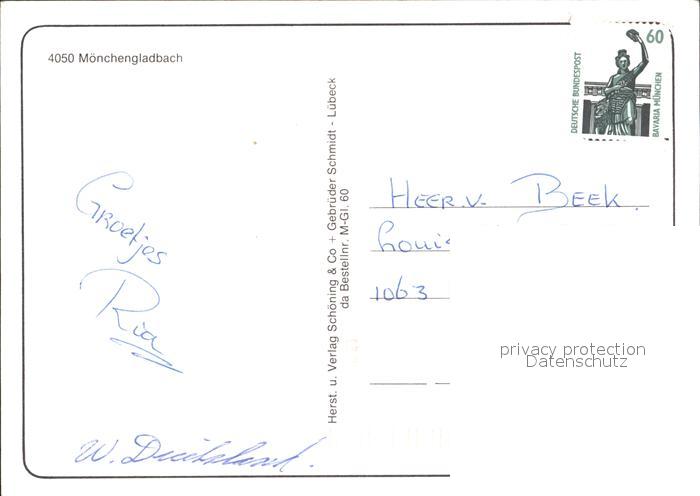 4050 Mönchengladbach
60
DEUTSCHE BUNDESPOST
BAVARIA MÜNCHEN
Groetjes
Ria
W. Duitsland.
Herst. u. Verlag Schöning & Co + Gebrüder Schmidt - Lübeck
da Bestellnr. M-Gl. 60
HEER.V. BEEK.
1063
privacy protection
Datenschutz